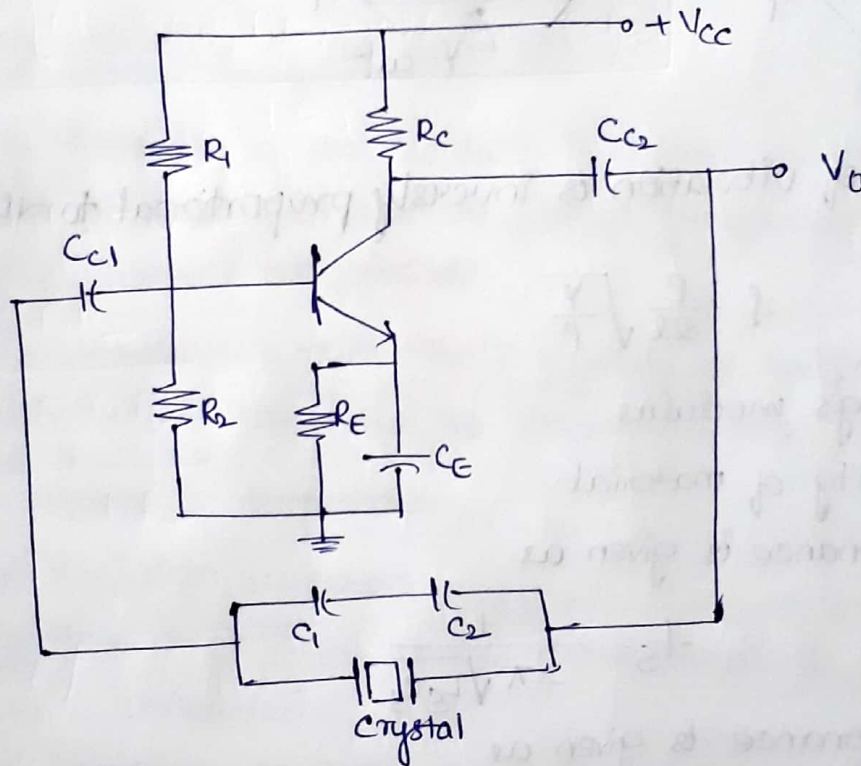 + Vcc
R1
Rc
Cc2
Vo
Cc1
R2
RE
CE
C1
C2
Crystal